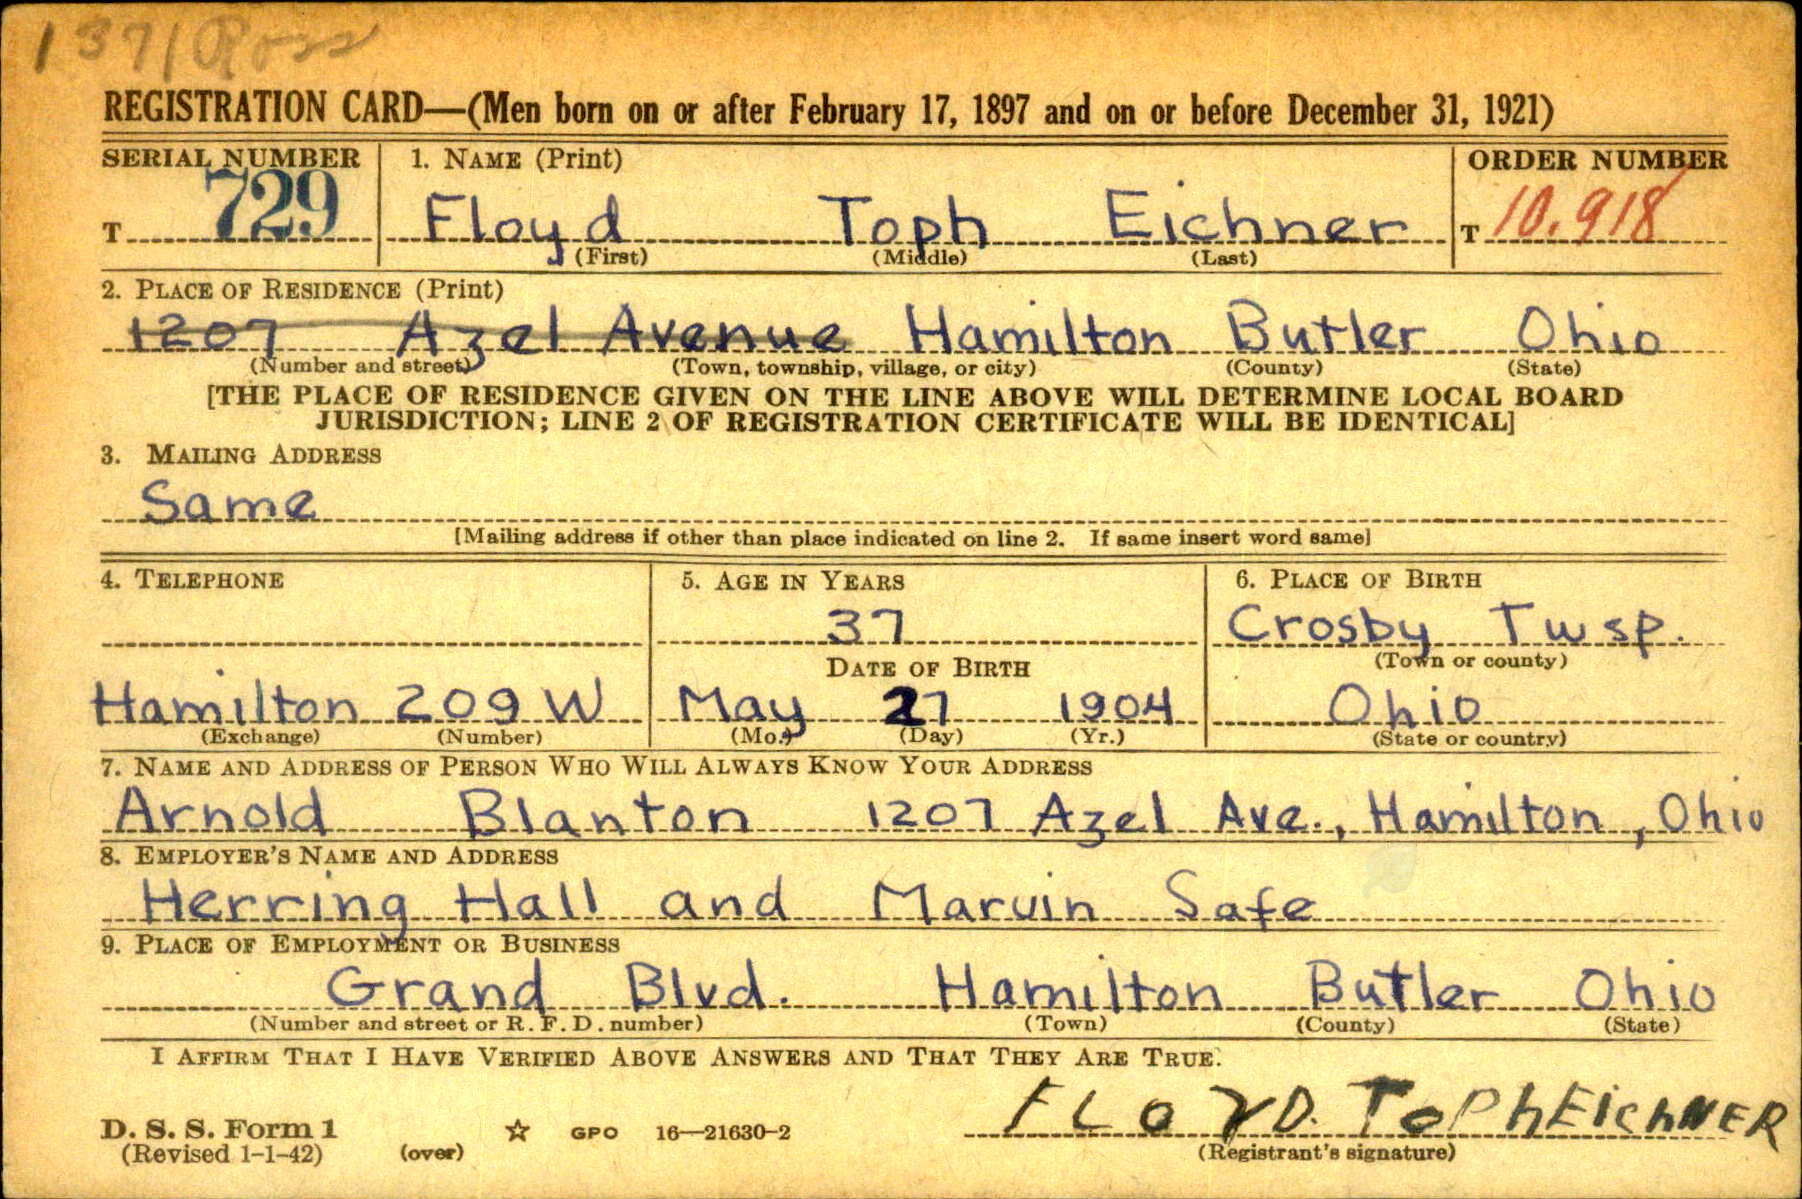 1371 Ross
REGISTRATION CARD—(Men born on or after February 17, 1897 and on or before December 31, 1921)
SERIAL NUMBER 1. NAME (Print) ORDER NUMBER
T 729 Floyd Toph Eichner T 10.918
(First) (Middle) (Last)
2. PLACE OF RESIDENCE (Print)
1207 Azel Avenue Hamilton Butler Ohio
(Number and street) (Town, township, village, or city) (County) (State)
[THE PLACE OF RESIDENCE GIVEN ON THE LINE ABOVE WILL DETERMINE LOCAL BOARD
JURISDICTION; LINE 2 OF REGISTRATION CERTIFICATE WILL BE IDENTICAL]
3. MAILING ADDRESS
Same
[Mailing address if other than place indicated on line 2. If same insert word same]
4. TELEPHONE 5. AGE IN YEARS 6. PLACE OF BIRTH
37 Crosby Twsp.
DATE OF BIRTH (Town or county)
Hamilton 209 W May 27 1904 Ohio
(Exchange) (Number) (Mo.) (Day) (Yr.) (State or country)
7. NAME AND ADDRESS OF PERSON WHO WILL ALWAYS KNOW YOUR ADDRESS
Arnold Blanton 1207 Azel Ave., Hamilton, Ohio
8. EMPLOYER'S NAME AND ADDRESS
Herring Hall and Marvin Safe
9. PLACE OF EMPLOYMENT OR BUSINESS
Grand Blvd. Hamilton Butler Ohio
(Number and street or R. F. D. number) (Town) (County) (State)
I AFFIRM THAT I HAVE VERIFIED ABOVE ANSWERS AND THAT THEY ARE TRUE.
FLOYD. TophEichNER
D. S. S. Form 1 GPO 16—21630-2
(Revised 1-1-42) (over) (Registrant's signature)